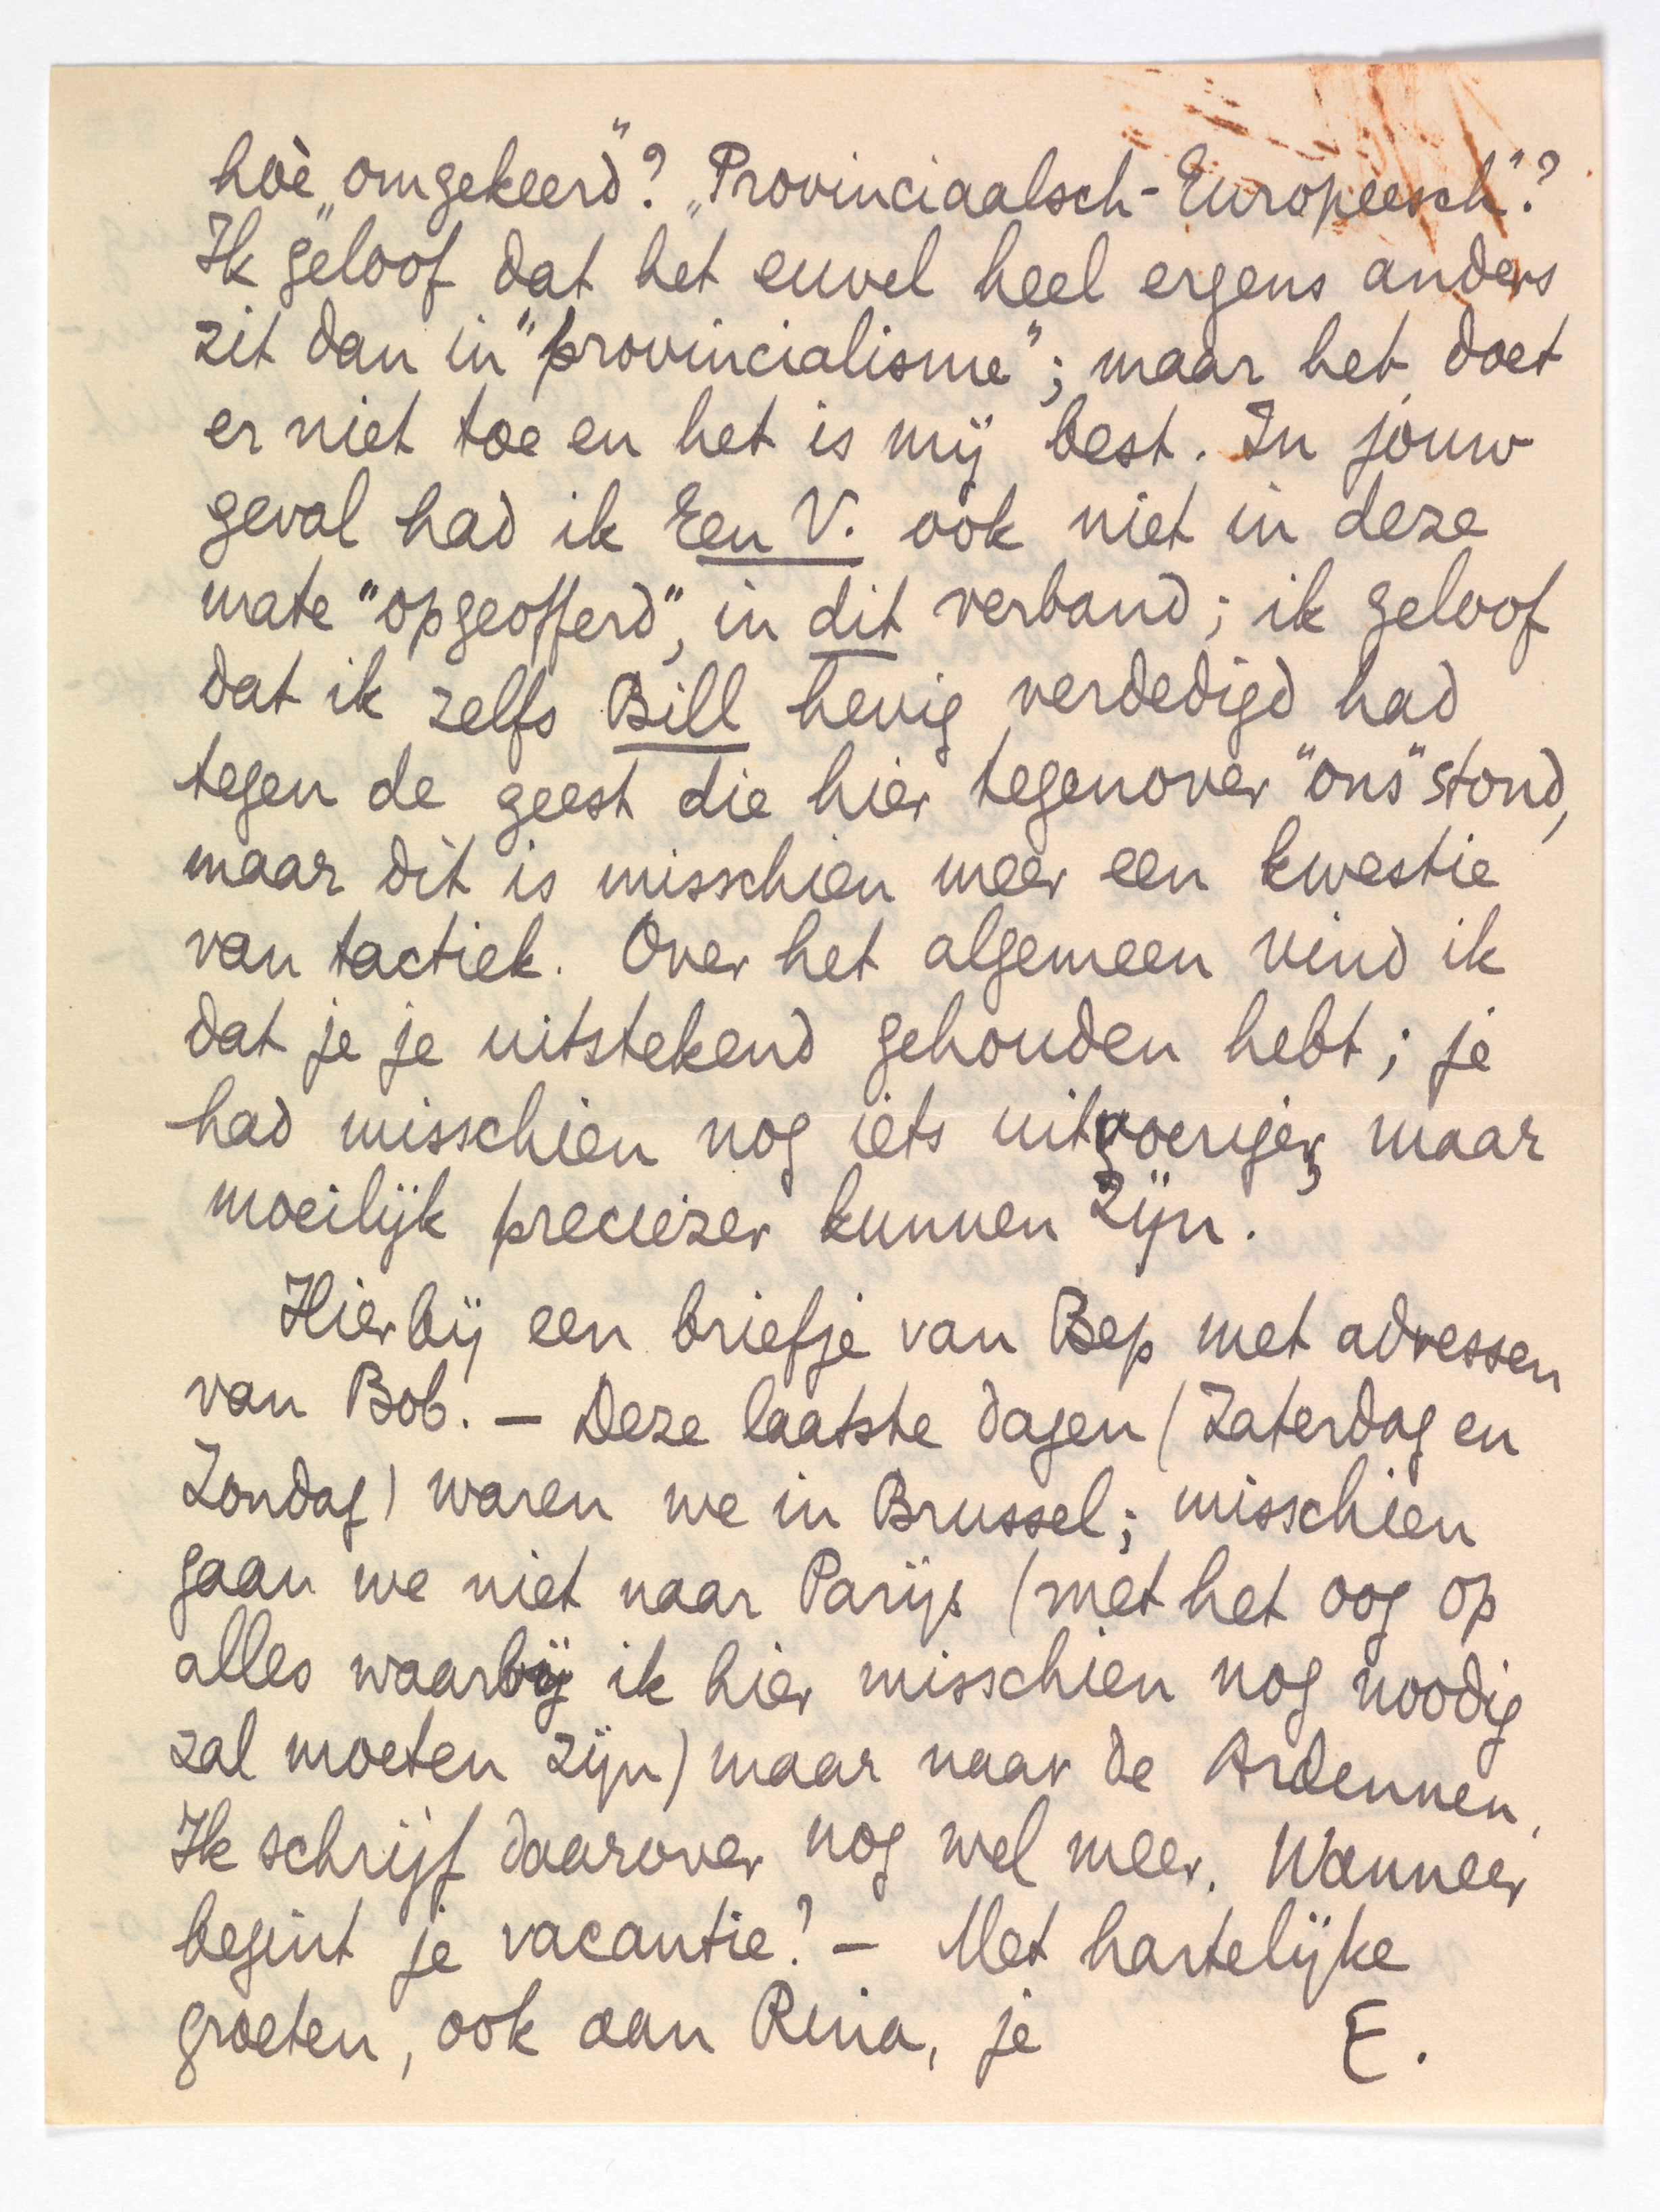 hoè „omgekeerd"? „Provinciaalsch-Europeesch"?
Ik geloof dat het euvel heel ergens anders
zit dan in "provincialisme"; maar het doet
er niet toe en het is mij best. In jouw
geval had ik Een V. ook niet in deze
mate "opgeofferd", in dit verband; ik geloof
dat ik zelfs Bill hevig verdedigd had
tegen de geest die hier tegenover "ons" stond,
maar dit is misschien meer een kwestie
van tactiek. Over het algemeen vind ik
dat je je uitstekend gehouden hebt; je
had misschien nog iets uitvoeriger, maar
moeilijk preciezer kunnen zijn.
Hierbij een briefje van Bep met adressen
van Bob. — Deze laatste dagen (Zaterdag en
Zondag) waren we in Brussel; misschien
gaan we niet naar Parijs (met het oog op
alles waarbij ik hier misschien nog noodig
zal moeten zijn) maar naar de Ardennen.
Ik schrijf daarover nog wel meer. Wanneer
begint je vacantie? — Met hartelijke
groeten, ook aan Rina, je E.